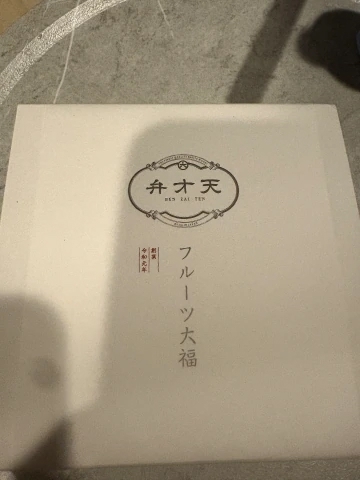 弁才天
BEN ZAI TEN
フルーツ大福
創業
令和元年